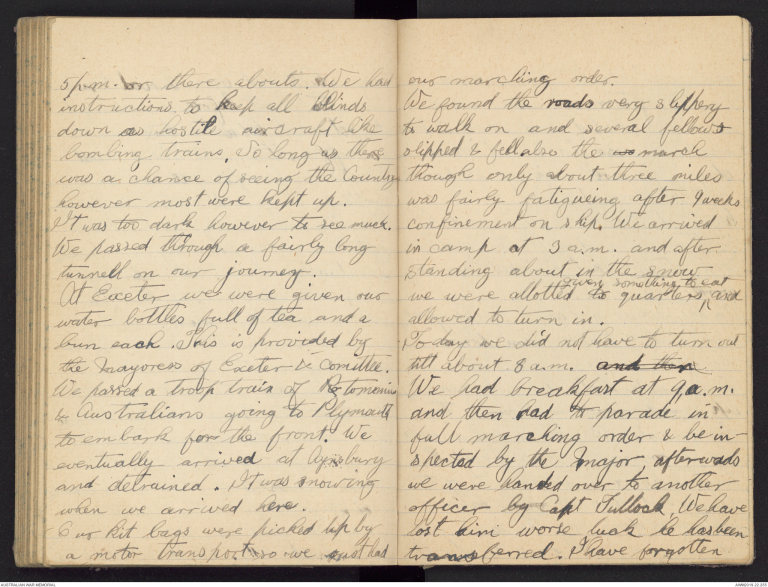 5 p.m. or there abouts. We had
instructions to keep all blinds
down as hostile aircraft like
bombing trains. So long as there
was a chance of seeing the Country
however most were kept up.
It was too dark however to see much.
We passed through a fairly long
tunnell on our journey.
At Exeter we were given our
water bottles full of tea and a
bun each. This is provided by
the Mayoress of Exeter & comittee.
We passed a troop train of
& Australians going to Plymouth
to embark for the front. We
eventually arrived at
and detrained. It was snowing
when we arrived here.
Our kit bags were picked up by
a motor transport so we just had
our marching order.
We found the roads very slippery
to walk on and several fellows
slipped & fell also the march
though only about three miles
was fairly fatigueing after 9 weeks
confinement on ship. We arrived
in camp at 3 a.m. and after
standing about in the snow
given something to eat
we were allotted to quarters, and
allowed to turn in.
Today we did not have to turn out
till about 8 a.m. and then
We had breakfast at 9 a.m.
and then had to parade in
full marching order & be in-
spected by the Major afterwads
we were handed over to another
officer by Capt Tullock. We have
lost him worse luck he has been
transferred. I have forgotten
AUSTRALIAN WAR MEMORIAL